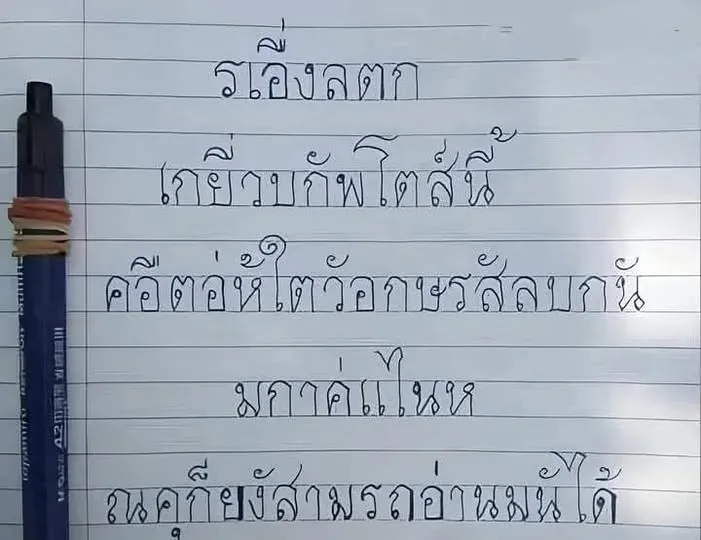 รเอื่งลตก
เกยี่วบกัพโตส์นี้
คอืตอ่ห้ใตวัอกษรสัลบกนั
มกาค่แไนห
ณคุก็ยงัสามรถอ่านมนัได้